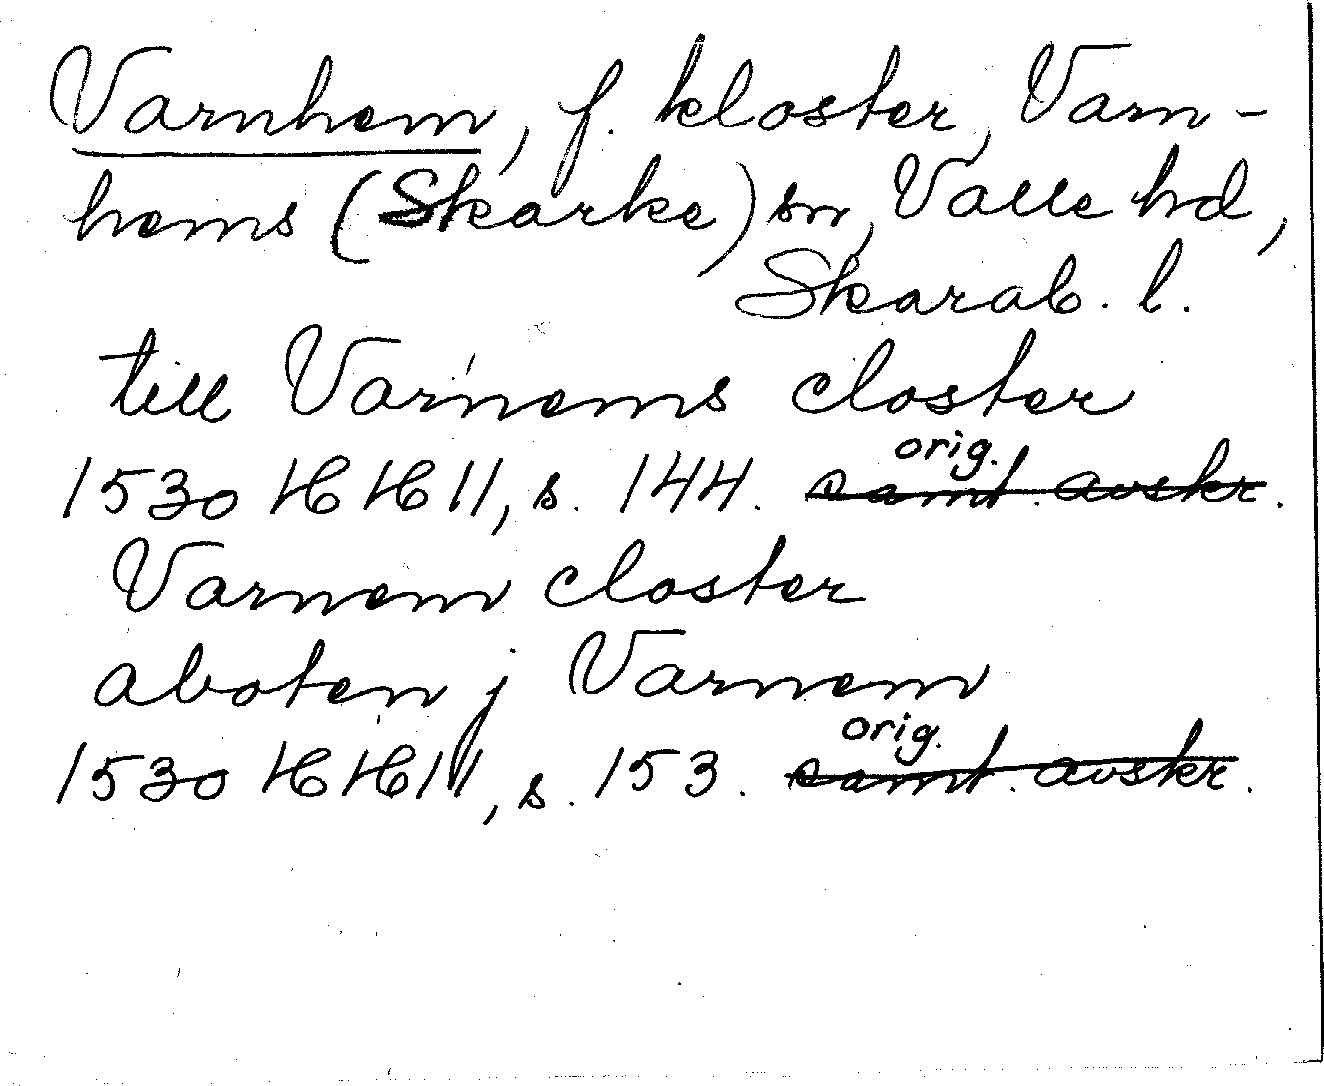 Varnhem, f. kloster, Varn-
hems (Skarke) sn, Valle hd,
Skarab. l.
till Varnems closter
1530 HH 11, s. 144. orig. samt. avskr.
Varnem closter
aboten j Varnem
1530 HH 11, s. 153. orig. samt. avskr.